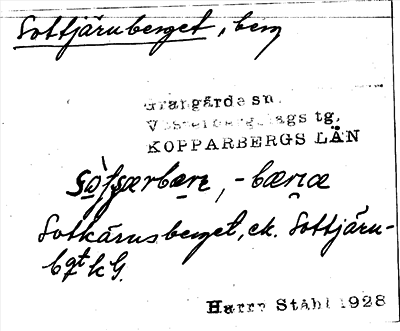 Sottjärnberget, berg
Grangärde sn.
Västerbergslags tg.
KOPPARBERGS LÄN
-bærıæ
Sotkärnsberget, ek. Sottjärn-
bgt k G.
Harry Ståhl 1928